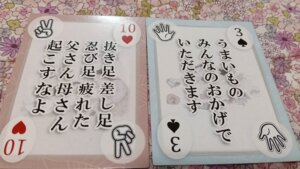 10
抜き足 差し足
忍び足 疲れた
父さん 母さん
起こすなよ
10
3
うまいもの
みんなのおかげで
いただきます
3